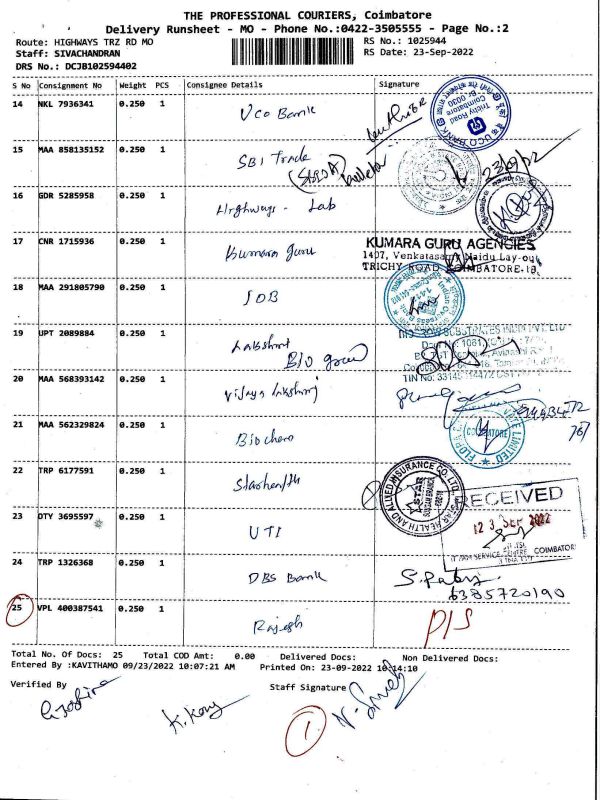 THE PROFESSIONAL COURIERS, Coimbatore
Delivery Runsheet - MO - Phone No.:0422-3505555 - Page No.:2
Route: HIGHWAYS TRZ RD MO RS No.: 1025944
Staff: SIVACHANDRAN RS Date: 23-Sep-2022
DRS No.: DCJB102594402
S No Consignment No Weight PCS Consignee Details Signature
14 NKL 7936341 0.250 1 Uco Bank
15 MAA 858135152 0.250 1 SBI Trade
23/09/22
16 GDR 5285958 0.250 1 Highways - Lab
17 CNR 1715936 0.250 1 Kumara guru
KUMARA GURU AGENCIES
1407, Venkatasamy Naidu Lay-out
TRICHY ROAD COIMBATORE-18
18 MAA 291805790 0.250 1 IOB
19 UPT 2089884 0.250 1 Lakshmi
Bio
20 MAA 568393142 0.250 1 Vijaya Lakshmi
21 MAA 562329824 0.250 1
22 TRP 6177591 0.250 1
STAR HEALTH AND ALLIED INSURANCE CO. LTD.
RECEIVED
23 DTY 3695597 0.250 1 UTI
COIMBATORE
24 TRP 1326368 0.250 1 DBS Bank
6385720190
25 VPL 400387541 0.250 1 Rajesh
Total No. Of Docs: 25 Total COD Amt: 0.00 Delivered Docs: Non Delivered Docs:
Entered By :KAVITHAMO 09/23/2022 10:07:21 AM Printed On: 23-09-2022 10:14:10
Verified By Staff Signature
1